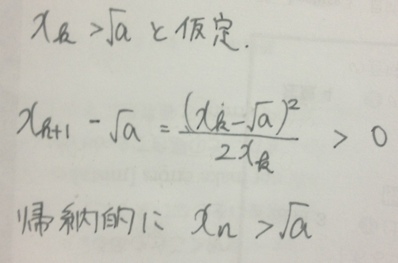 x_k > √a と仮定.
x_{k+1} - √a = (x_k - √a)² / 2x_k > 0
帰納的に x_n > √a